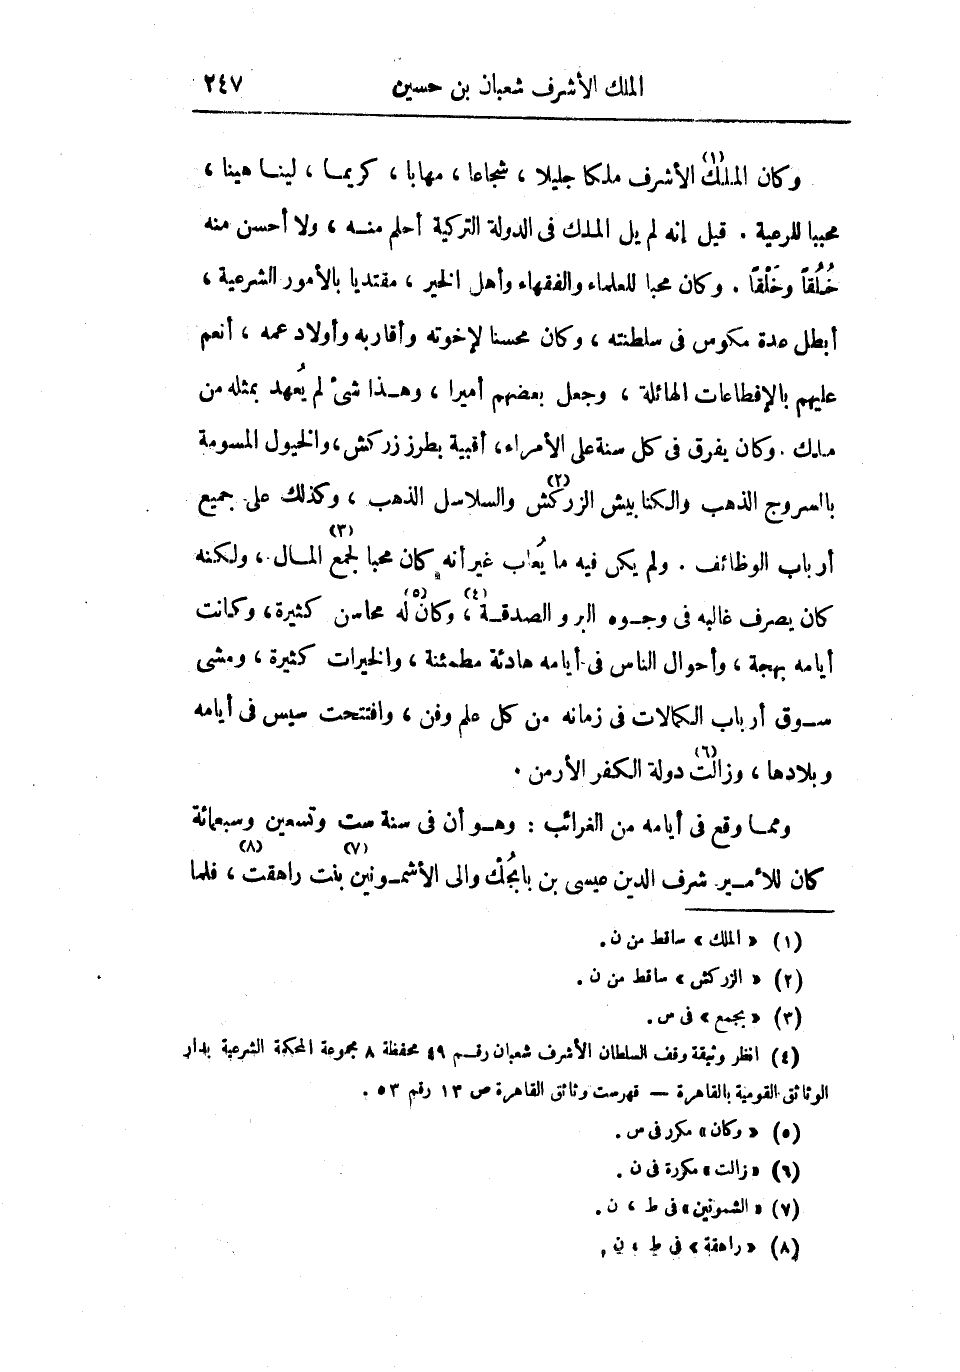 الملك الأشرف شعبان بن حسين ٢٤٧
وكان الملك(١) الأشرف ملكا جليلا ، شجاعا ، مهابا ، كريمـا ، لينـا هينا ،
محببا للرعية . قيل إنه لم يل الملك فى الدولة التركية أحلم منـه ، ولا أحسن منه
خُلُقاً وخَلْقاً . وكان محبا للعلماء والفقهاء وأهل الخير ، مقتديا بالأمور الشرعية ،
أبطل عدة مكوس فى سلطنته ، وكان محسنا لإخوته وأقاربه وأولاد عمه ، أنعم
عليهم بالإقطاعات الهائلة ، وجعل بعضهم أميرا ، وهـذا شئ لم يُعهد بمثله من
ملك . وكان يفرق فى كل سنة على الأمراء، أقبية بطرز زركش ، والخيول المسومة
بالسروج الذهب والكنابيش الزركش(٢) والسلاسل الذهب ، وكذلك على جميع
أرباب الوظائف . ولم يكن فيه ما يُعاب غير أنه كان محبا لجمع(٣) المال ، ولكنه
كان يصرف غالبه فى وجـوه البر و الصدقـة(٤) ، وكان(٥) له محاسن كثيرة ، وكانت
أيامه بهجة ، وأحوال الناس فى أيامه هادئة مطمئنة ، والخيرات كثيرة ، ومشى
سـوق أرباب الكمالات فى زمانه من كل علم وفن ، وافتتحت سيس فى أيامه
وبلادها ، وزالت(٦) دولة الكفر الأرمن .
وممـا وقع فى أيامه من الغرائب : وهـو أن فى سنة ست وتسعين وسبعمائة
كان للأمـير شرف الدين عيسى بن بابجُلْك والى الأشمـونين(٧) بنت راهقت(٨) ، فلما
(١) « الملك » ساقط من ن .
(٢) « الزركش » ساقط من ن .
(٣) « بجمع » فى س .
(٤) انظر وثيقة وقف السلطان الأشرف شعبان رقـم ٤٩ محفظة ٨ مجموعة المحكمة الشرعية بدار
الوثائق القومية بالقاهرة — فهرست وثائق القاهرة ص ١٣ رقم ٥٣ .
(٥) « وكان » مكرر فى س .
(٦) « زالت » مكررة فى ن .
(٧) « الشمونين » فى ط ، ن .
(٨) « راهقة » فى ط ، ن .